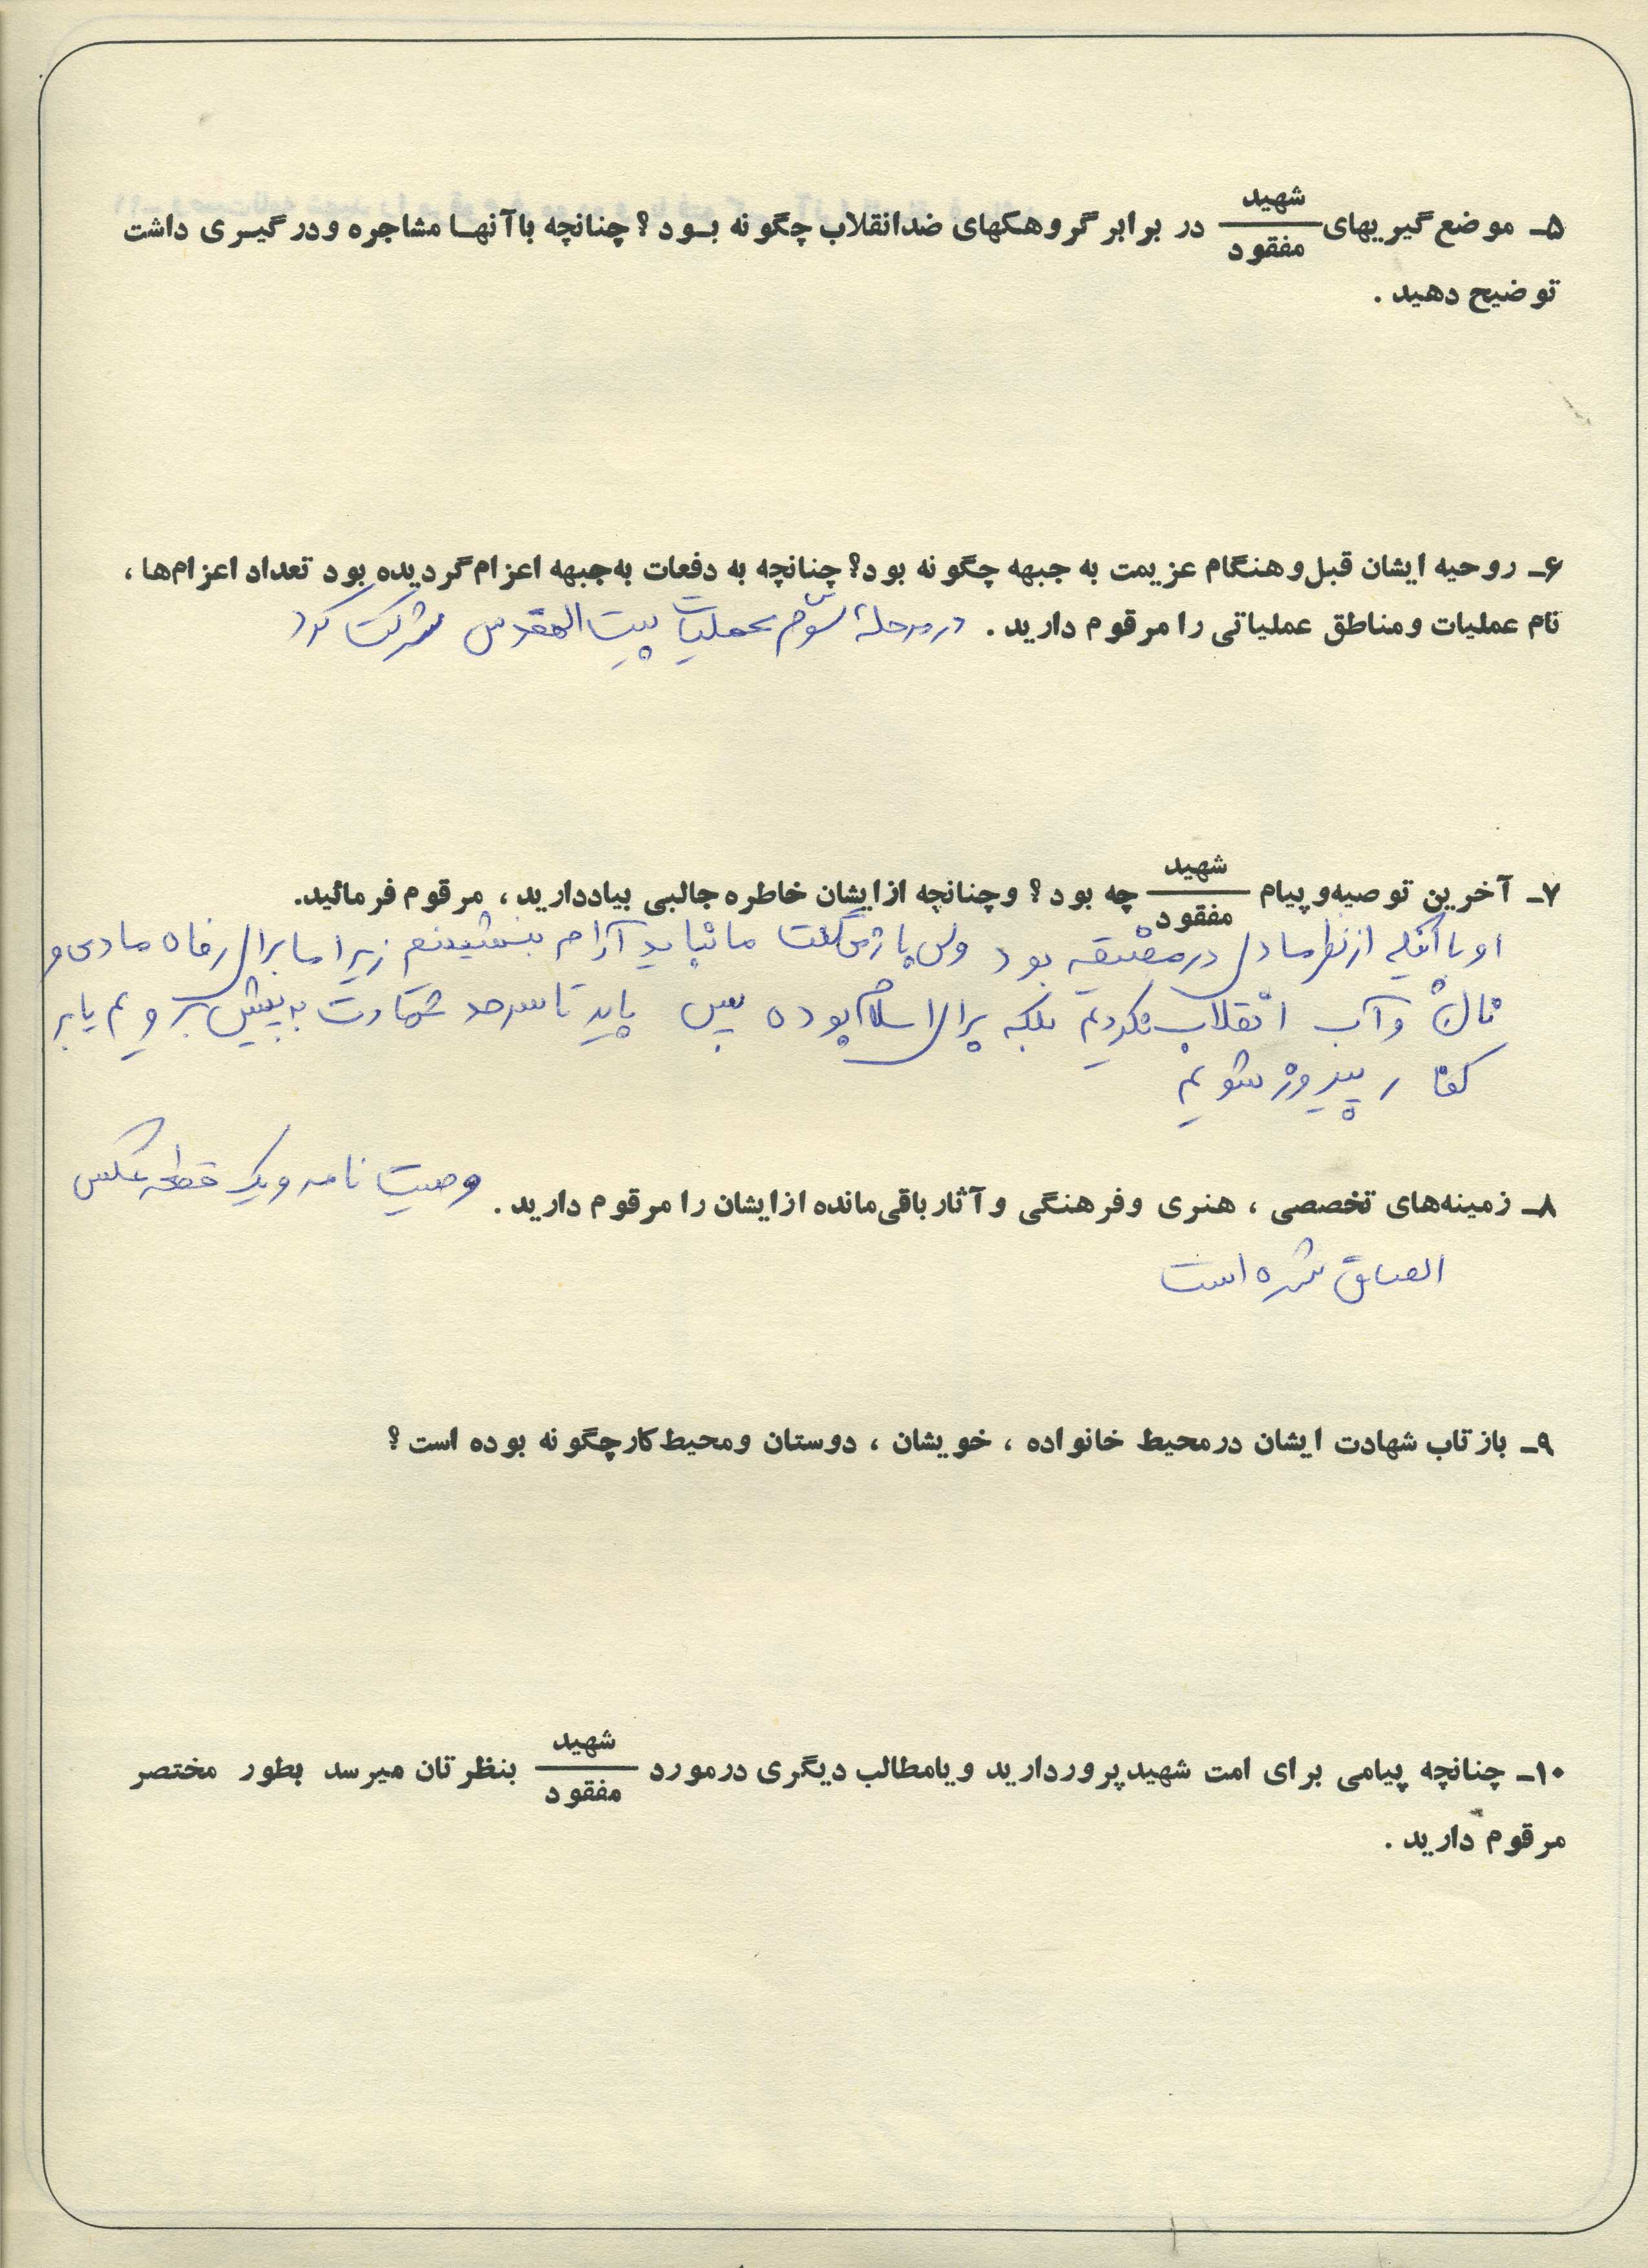 ۵ـ موضع‌گیریهای شهید/مفقود در برابر گروهکهای ضدانقلاب چگونه بود؟ چنانچه باآنها مشاجره ودرگیری داشت
توضیح دهید .
۶ـ روحیه ایشان قبل‌وهنگام عزیمت به جبهه چگونه بود؟ چنانچه به دفعات به‌جبهه اعزام‌گردیده بود تعداد اعزام‌ها ،
نام عملیات ومناطق عملیاتی را مرقوم دارید . در مرحلهٔ سوم عملیات بیت المقدس شرکت کرد
۷ـ آخرین توصیه‌وپیام شهید/مفقود چه بود؟ وچنانچه ازایشان خاطره‌جالبی بیاددارید، مرقوم‌فرمائید.
او با آنکه از نظر مادی در مضیقه بود ولی باز می‌گفت ما نباید آرام بنشینیم زیرا ما برای رفاه مادی و
نان و آب انقلاب نکردیم بلکه برای اسلام بوده پس باید تا سرحد شهادت به پیش برویم یا بر
کفار پیروز شویم
۸ـ زمینه‌های تخصصی ، هنری وفرهنگی وآثارباقی‌مانده ازایشان را مرقوم دارید . وصیت نامه و یک قطعه عکس
الصاق شده است
۹ـ بازتاب شهادت ایشان درمحیط خانواده ، خویشان ، دوستان ومحیط‌کارچگونه بوده است؟
۱۰ـ چنانچه پیامی برای امت شهیدپروردارید ویامطالب دیگری درمورد شهید/مفقود بنظرتان میرسد بطور مختصر
مرقوم دارید .